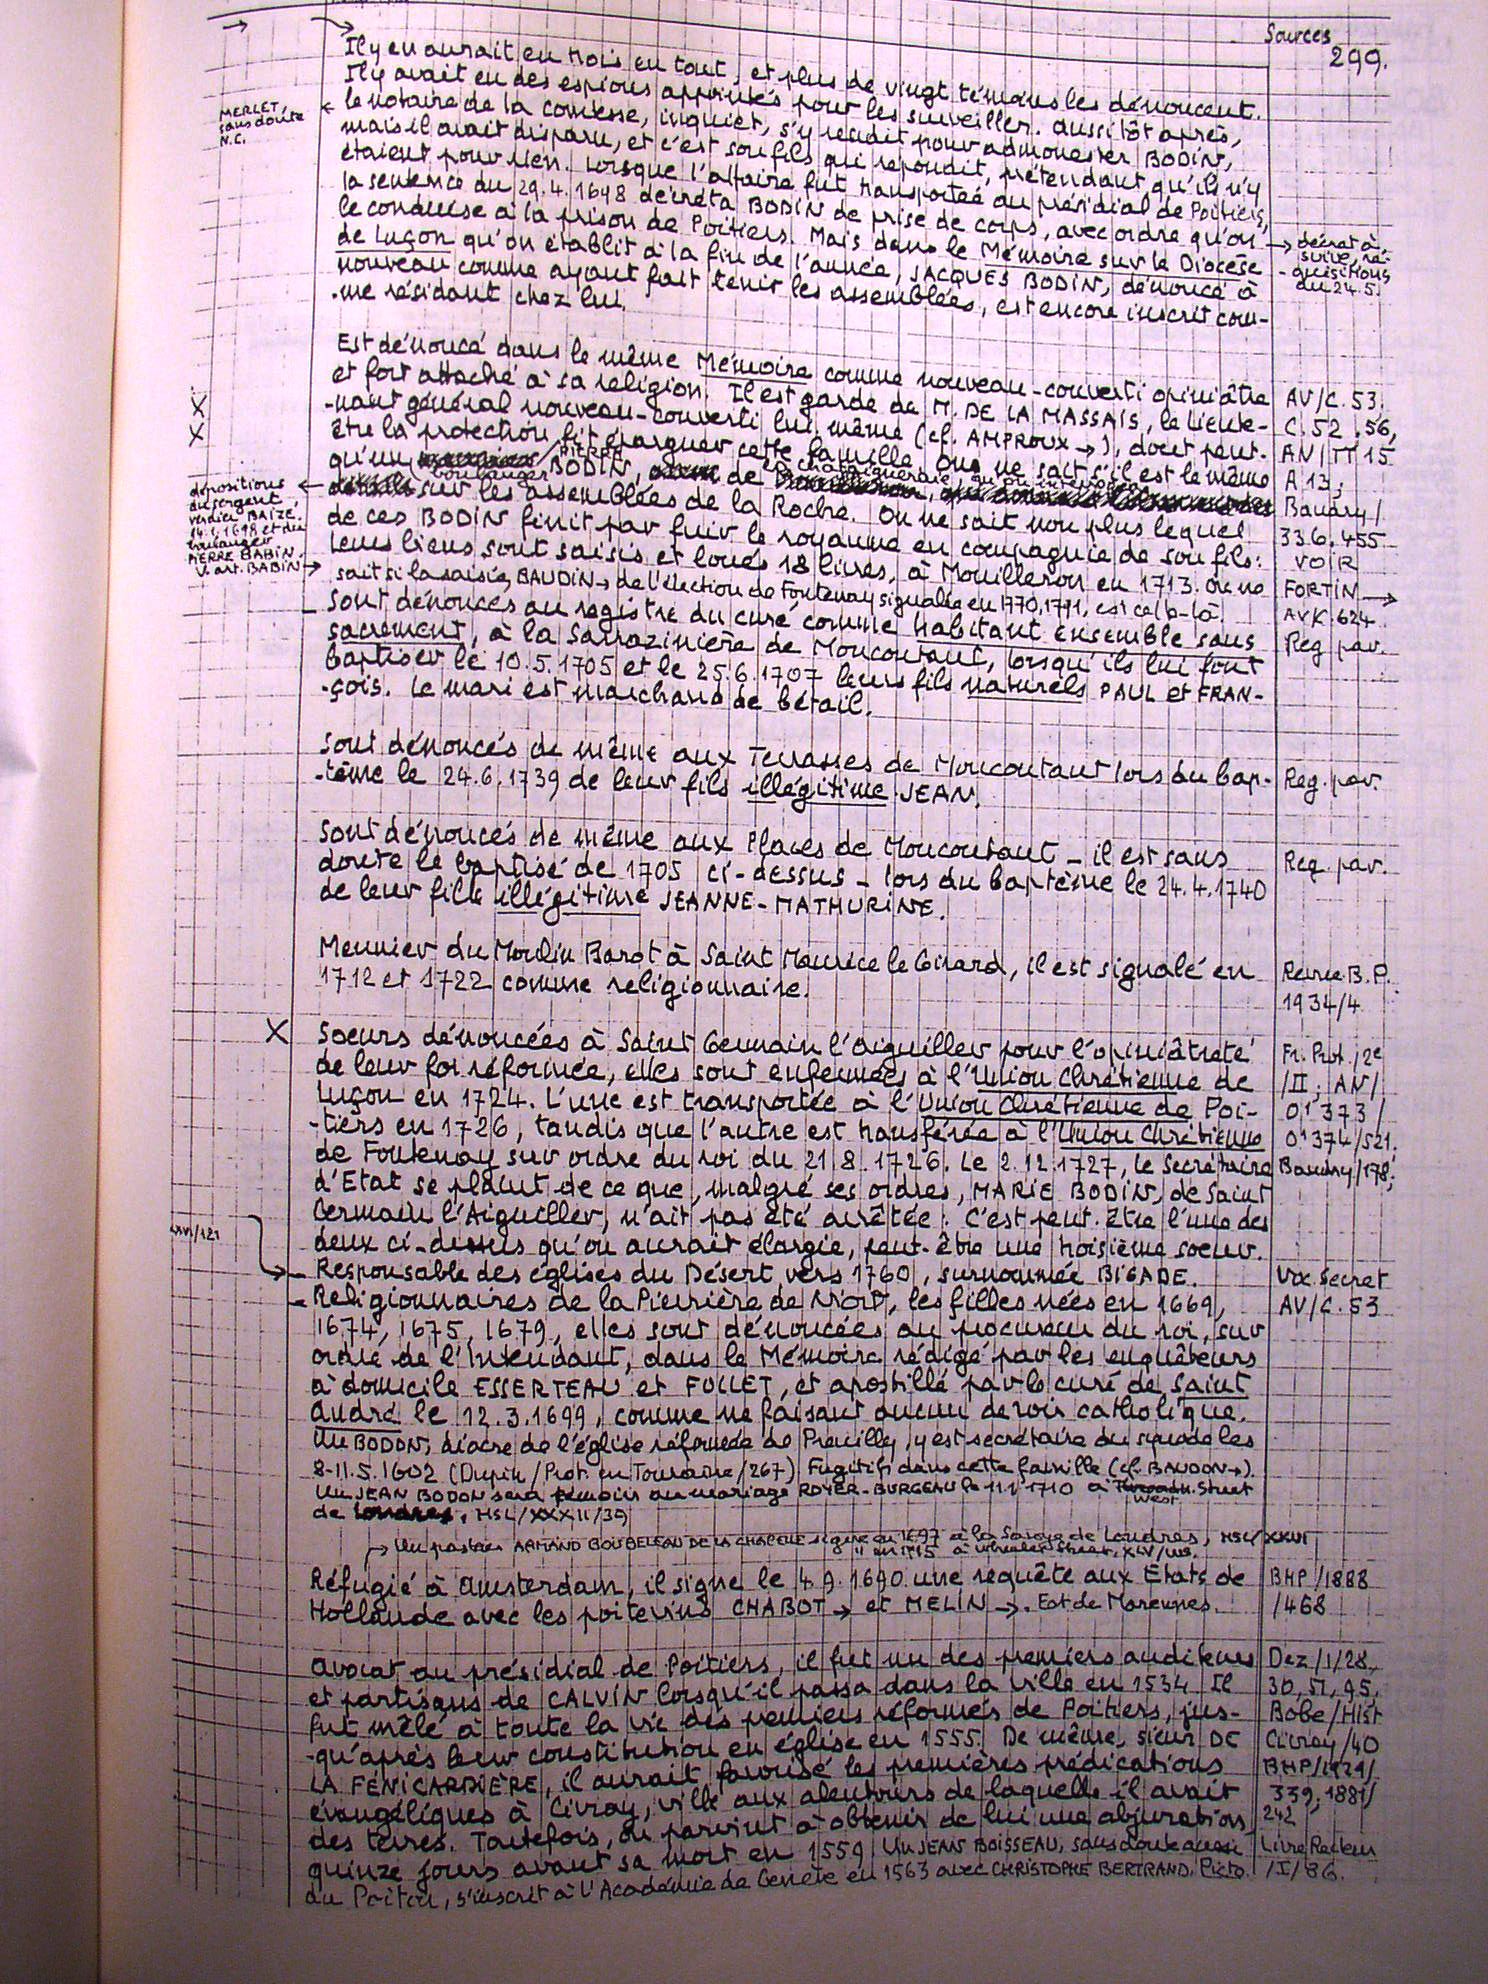 Sources
299.
Il y en aurait eu trois en tout, et plus de vingt témoins les dénoncent.
Il y avait eu des espions appointés pour les surveiller. Aussitôt après,
le notaire de la comtesse, inquiet, s'y rendit pour admonester BODIN,
mais il avait disparu, et c'est son fils qui répondit, prétendant qu'ils n'y
étaient pour rien. Lorsque l'affaire fut transportée au présidial de Poitiers,
la sentence du 29.4.1698 décréta BODIN de prise de corps, avec ordre qu'on
le conduise à la prison de Poitiers. Mais dans le Mémoire sur le Diocèse
de Luçon qu'on établit à la fin de l'année, JACQUES BODIN, dénoncé à
nouveau comme ayant fait tenir les assemblées, est encore inscrit com-
-me résidant chez lui.
MERLET,
sans doute
N.C.
décret à
suivre, ré-
-quisitions
du 24.5.
Est dénoncé dans le même Mémoire comme nouveau-converti opiniâtre
et fort attaché à sa religion. Il est garde de M. DE LA MASSAIS, le lieute-
-nant général nouveau-converti lui même (cf. AMPROUX→), dont peut-
être la protection fit épargner cette famille. On ne sait s'il est le même
qu'un boulanger PIERRE BODIN, de la Chataigneraie, qu'on interrogea
sur les assemblées de la Roche. On ne sait non plus lequel
de ces BODIN finit par fuir le royaume en compagnie de son fils:
leurs biens sont saisis et loués 18 livres, à Mouilleron en 1713. On ne
sait si la saisie, BAUDIN→ de l'élection de Fontenay signalée en 1770, 1791, est celle-là.
AV/C.53,
C.52.56,
AN/TT 15
A 13;
Baudry/
336.455
VOIR
FORTIN→
AVK.624
X
X
dépositions
du sergent
verdier BAIZE
14.1.1698 et du
boulanger
PIERRE BABIN.
V. art. BABIN→
Sont dénoncés au registre du curé comme habitant ensemble sans
sacrement, à la Sarrazinière de Moncoutant, lorsqu'ils lui font
baptiser le 10.5.1705 et le 25.6.1707 leurs fils naturels PAUL et FRAN-
-çois. Le mari est marchand de bétail.
Reg. par.
Sont dénoncés de même aux Terrasses de Moncoutant lors du bap-
-tême le 24.6.1739 de leur fils illégitime JEAN.
Reg. par.
Sont dénoncés de même aux Places de Moncoutant – il est sans
doute le baptisé de 1705 ci-dessus – lors du baptême le 24.4.1740
de leur fille illégitime JEANNE-MATHURINE.
Reg. par.
Meunier du Moulin Barot à Saint Maurice le Girard, il est signalé en
1712 et 1722 comme religionnaire.
Revue B.P.
1934/4
X
Soeurs dénoncées à Saint Germain l'Aiguiller pour l'opiniâtreté
de leur foi réformée, elles sont enfermées à l'Union Chrétienne de
Luçon en 1724. L'une est transportée à l'Union Chrétienne de Poi-
-tiers en 1726, tandis que l'autre est transférée à l'Union Chrétienne
de Fontenay sur ordre du roi du 21.8.1726. Le 2.12.1727, le Secrétaire
d'Etat se plaint de ce que, malgré ses ordres, MARIE BODIN, de Saint
Germain l'Aiguiller, n'ait pas été arrêtée. C'est peut-être l'une des
deux ci-dessus qu'on aurait élargie, peut-être une troisième soeur.
Fr. Prot./2e
/II; AN/
O¹ 373/
O¹ 374/521;
Baudry/178;
Responsable des églises du Désert vers 1760, surnommée BIGADE.
Vx. Secret
Religionnaires de la Pierrière de NIORT, les filles nées en 1669,
1674, 1675, 1679, elles sont dénoncées au procureur du roi, sur
ordre de l'Intendant, dans le Mémoire rédigé par les enquêteurs
à domicile ESSERTEAU et FOLLET, et apostillé par le curé de Saint
André le 12.3.1699, comme ne faisant aucun devoir catholique.
AV/C.53
Un BODON, diacre de l'église réformée de Preuilly, y est secrétaire du synode les
8-11.5.1602 (Dupin/Prot. en Touraine/267). Fugitifs dans cette famille (cf. BAUDON→).
Un JEAN BODON sera témoin au mariage ROYER-BURGEAU le 11.1.1710 à West Street
de Londres. HSL/XXXII/39
→ Un pasteur ARMAND BOUBELEAU DE LA CHAPELLE signe en 1697 à la Savoye de Londres, HSL/XXVI
" en 1715 à Wheeler Street, XLV/
Réfugié à Amsterdam, il signe le 4.9.1690 une requête aux Etats de
Hollande avec les poitevins CHABOT→ et MELIN→. Est de Marennes.
BHP/1888
/468
Avocat au présidial de Poitiers, il fut un des premiers auditeurs
et partisans de CALVIN lorsqu'il passa dans la ville en 1534. Il
fut mêlé à toute la vie des premiers réformés de Poitiers, jus-
-qu'après leur constitution en église en 1555. De même, sieur DE
LA FENICARDIERE, il aurait favorisé les premières prédications
évangéliques à Civray, ville aux alentours de laquelle il avait
des terres. Toutefois, on parvint à obtenir de lui une abjuration
quinze jours avant sa mort en 1559. Un JEAN BOISSEAU, sans doute aussi
du Poitou, s'inscrit à l'Académie de Genève en 1563 avec CHRISTOPHE BERTRAND, Picto.
Dez/1/28,
30,51,95,
Bobe/Hist
Civray/40
BHP/1929/
339, 1881/
242
Livre Recteur
/I/86.